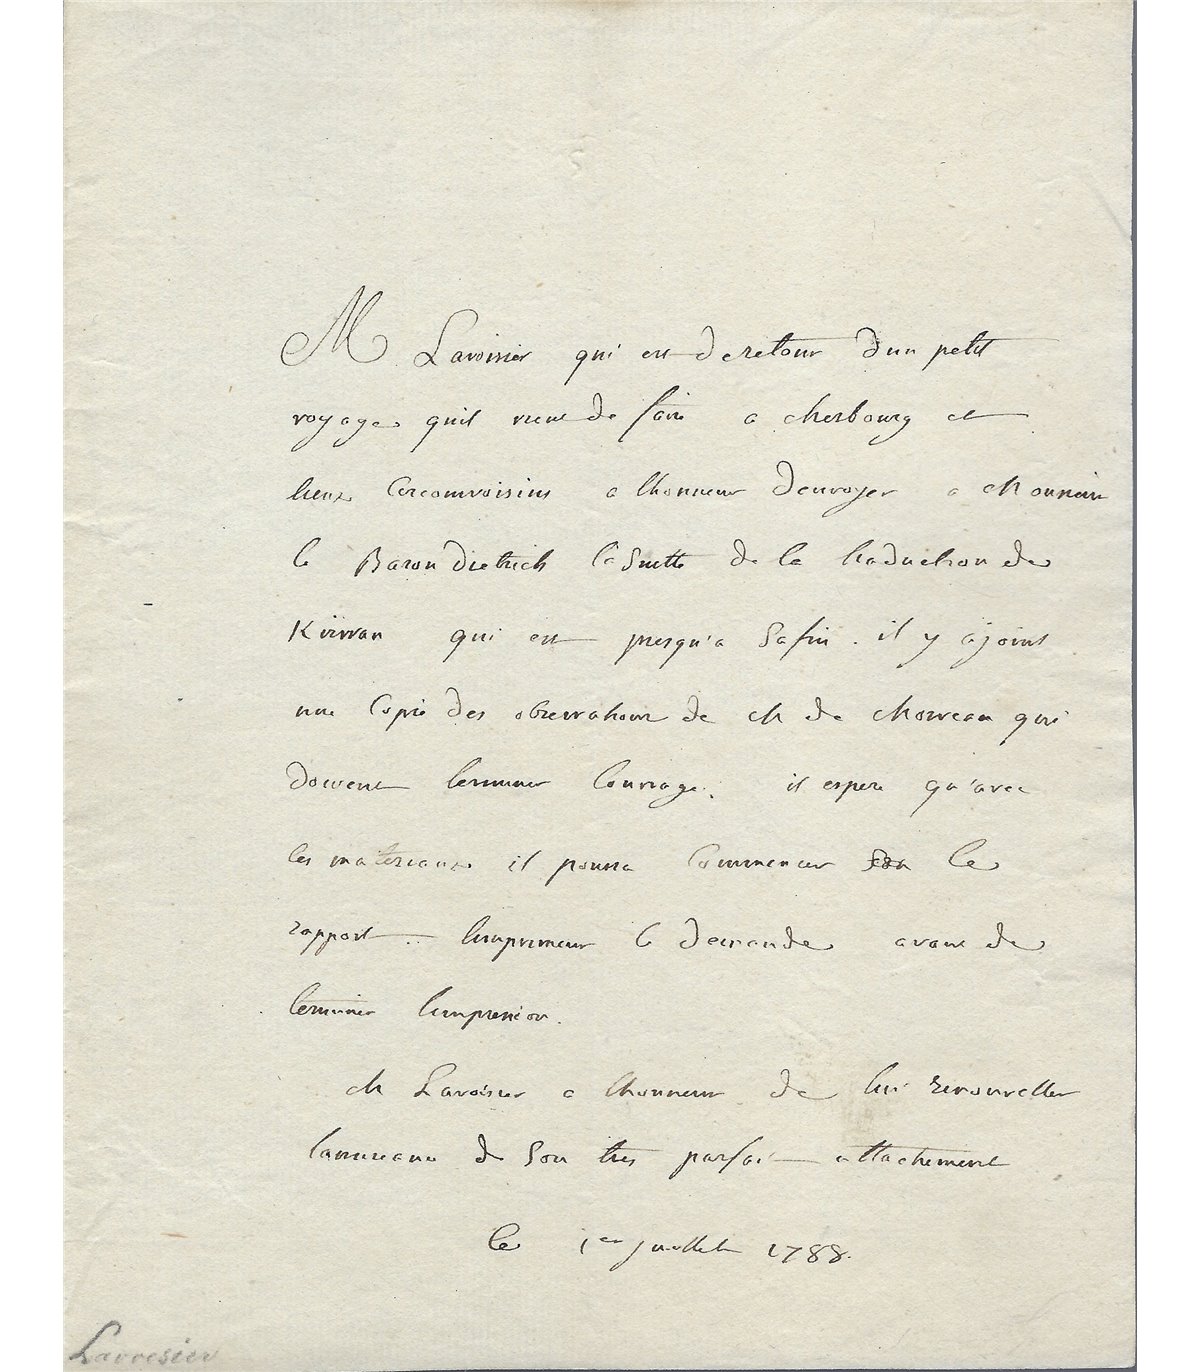 M Lavoisier qui est de retour dun petit
voyage quil vient de faire a cherbourg et
lieux circonvoisins a lhonneur denvoyer a Monsieur
le Baron Dietrich la Suitte de la traduction de
Kirwan qui est presqu'a Sa fin. il y a joint
une Copie des observations de M de Morveau qui
doivent terminer louvrage. il espere qu'avec
ces materiaux il pourra Commencer Son le
rapport. limprimeur le demande avant de
terminer limpression.
M Lavoisier a lhonneur de lui renouveller
lassurance de Son tres parfait attachement
le 1er juillet 1788.
Lavoisier